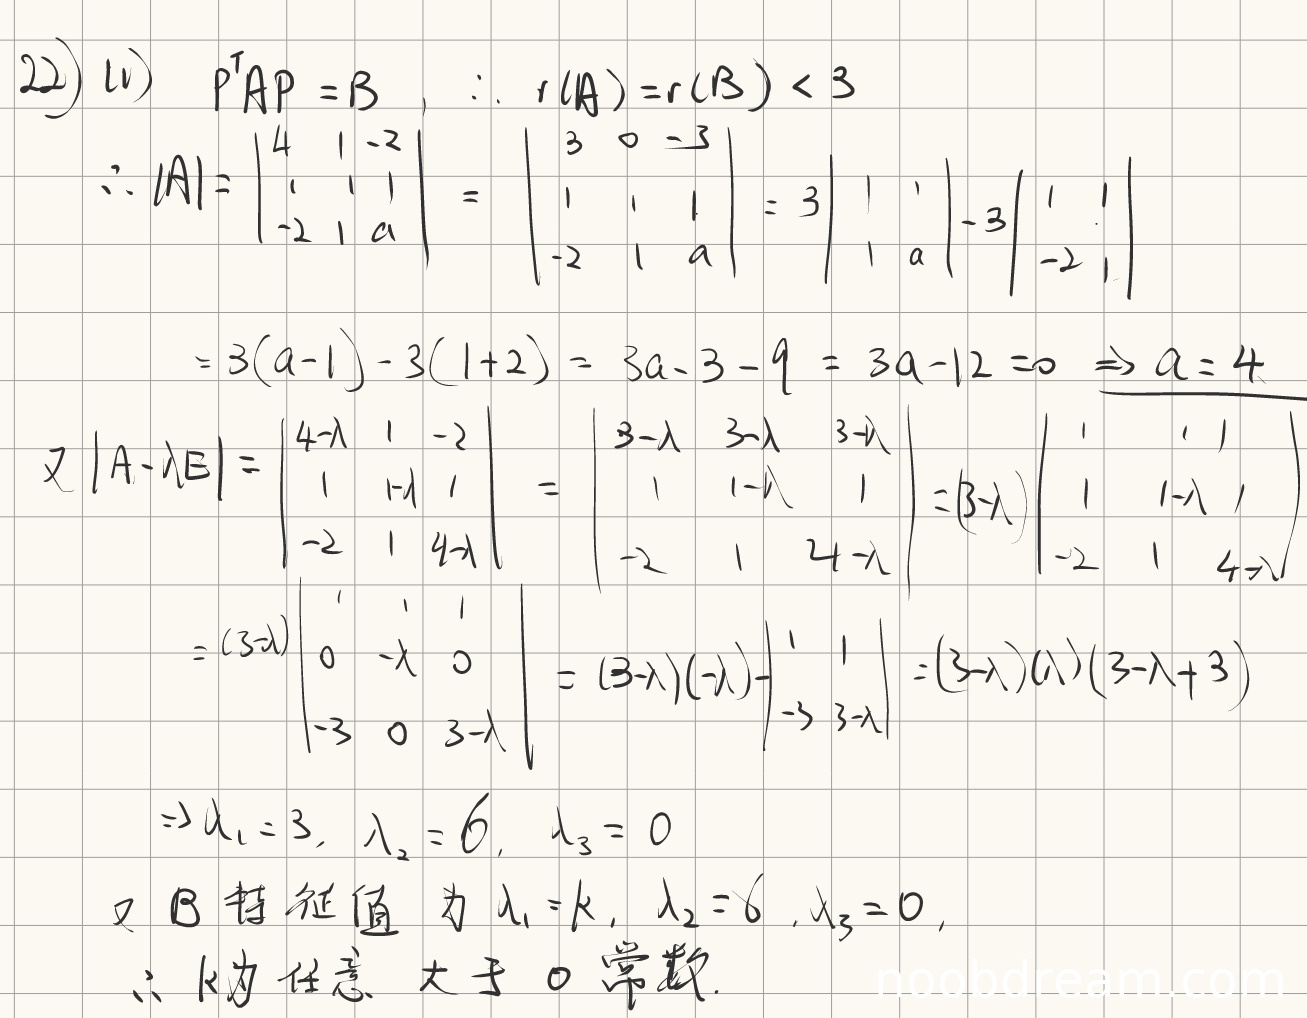 22) (1) PᵀAP = B, ∴ r(A) = r(B) < 3
∴ |A| = | 4 1 -2 ; 1 1 1 ; -2 1 a | = | 3 0 -3 ; 1 1 1 ; -2 1 a | = 3 | 1 1 ; 1 a | - 3 | 1 1 ; -2 1 |
= 3(a-1) - 3(1+2) = 3a-3-9 = 3a-12 = 0 ⇒ a = 4
又 |A-λE| = | 4-λ 1 -2 ; 1 1-λ 1 ; -2 1 4-λ | = | 3-λ 3-λ 3-λ ; 1 1-λ 1 ; -2 1 4-λ | = (3-λ) | 1 1 1 ; 1 1-λ 1 ; -2 1 4-λ |
= (3-λ) | 1 1 1 ; 0 -λ 0 ; -3 0 3-λ | = (3-λ)(-λ)- | 1 1 ; -3 3-λ | = (3-λ)(λ)(3-λ+3)
⇒ λ₁ = 3, λ₂ = 6, λ₃ = 0
又 B 特征值 为 λ₁ = k, λ₂ = 6, λ₃ = 0,
∴ k为 任意 大于 0 常数.
noobdream.com